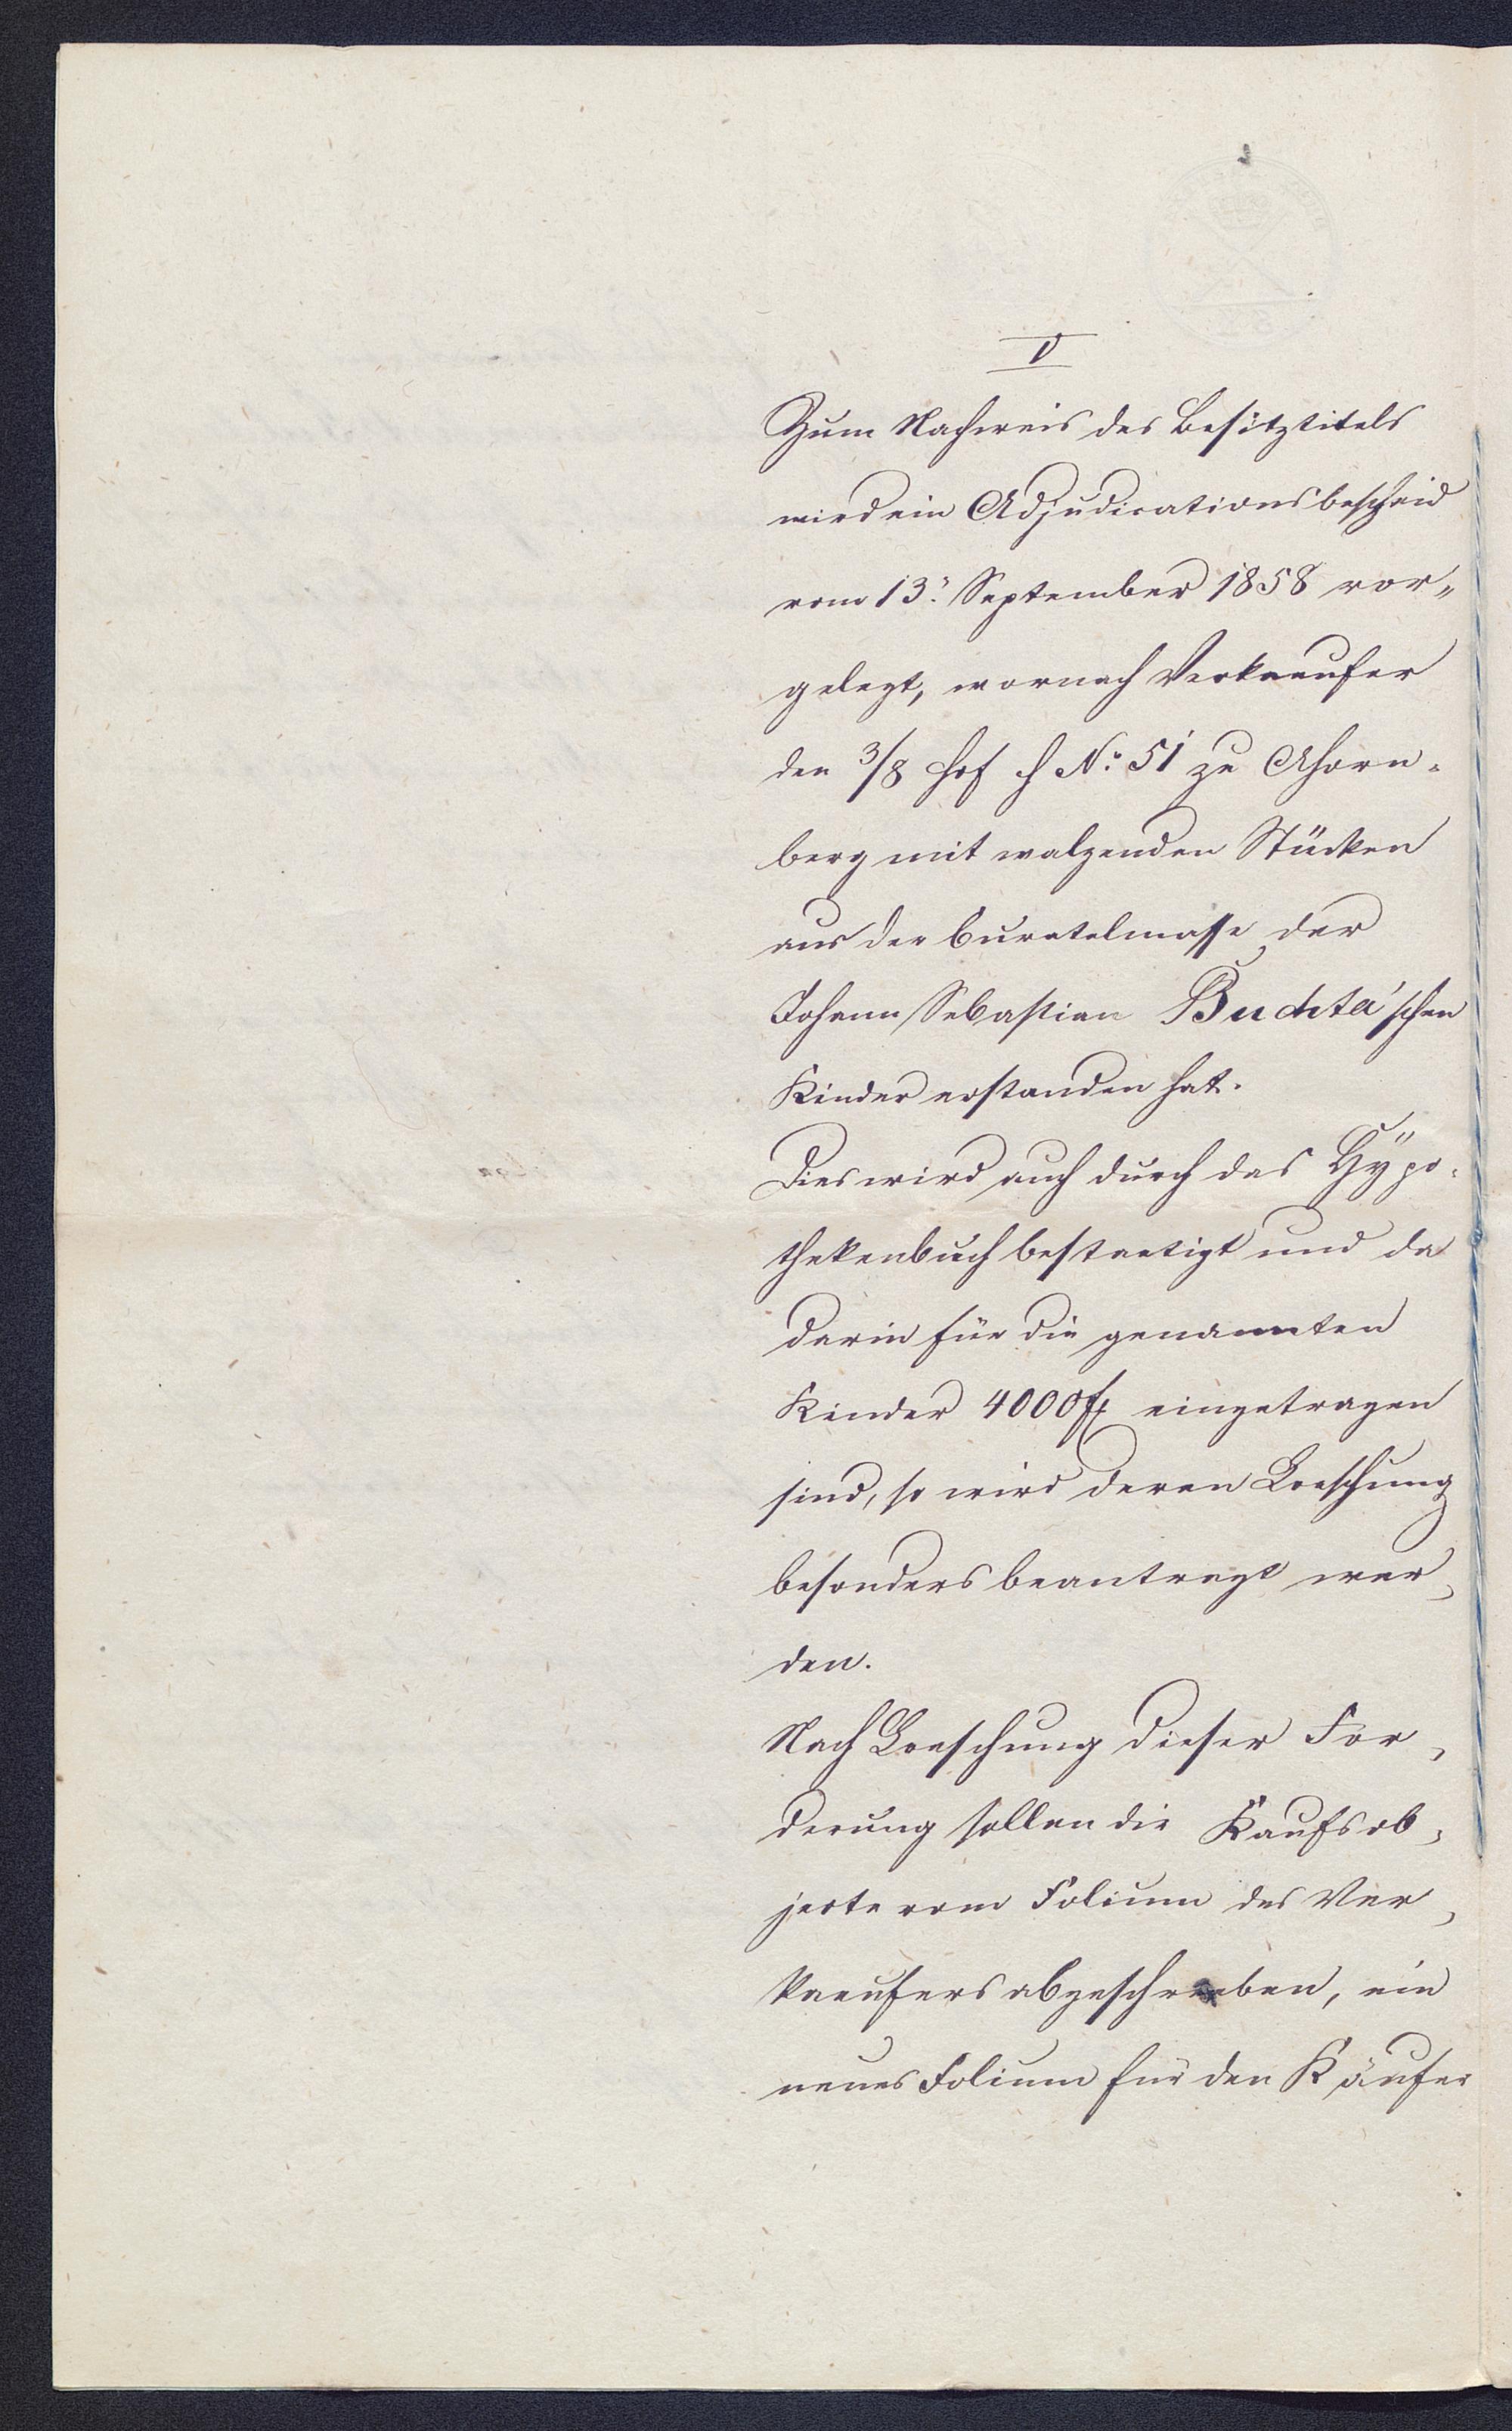 V
Zum Nachweis des Besitztitels
wird ein Adjudicationsbescheid
vom 13. September 1858 vor„
gelegt, wornach Verkaeufer
den 3/8 Hof H No. 51 zu Ahorn-
berg mit walzenden Stücken
aus der Curatelmasse der
Johann Sebastian Buchta'schen
Kinder erstanden hat.
Dies wird auch durch das Hÿpo-
thekenbuch bestaetigt und da
darin für die genannten
Kinder 4000 f eingetragen
sind, so wird deren Loeschung
besonders beantragt wer„
den.
Nach Loeschung dieser For„
derung sollen die Kaufsob„
jecte vom Folium des Ver„
kaeufers abgeschrieben, ein
neues Folium für den Käufer